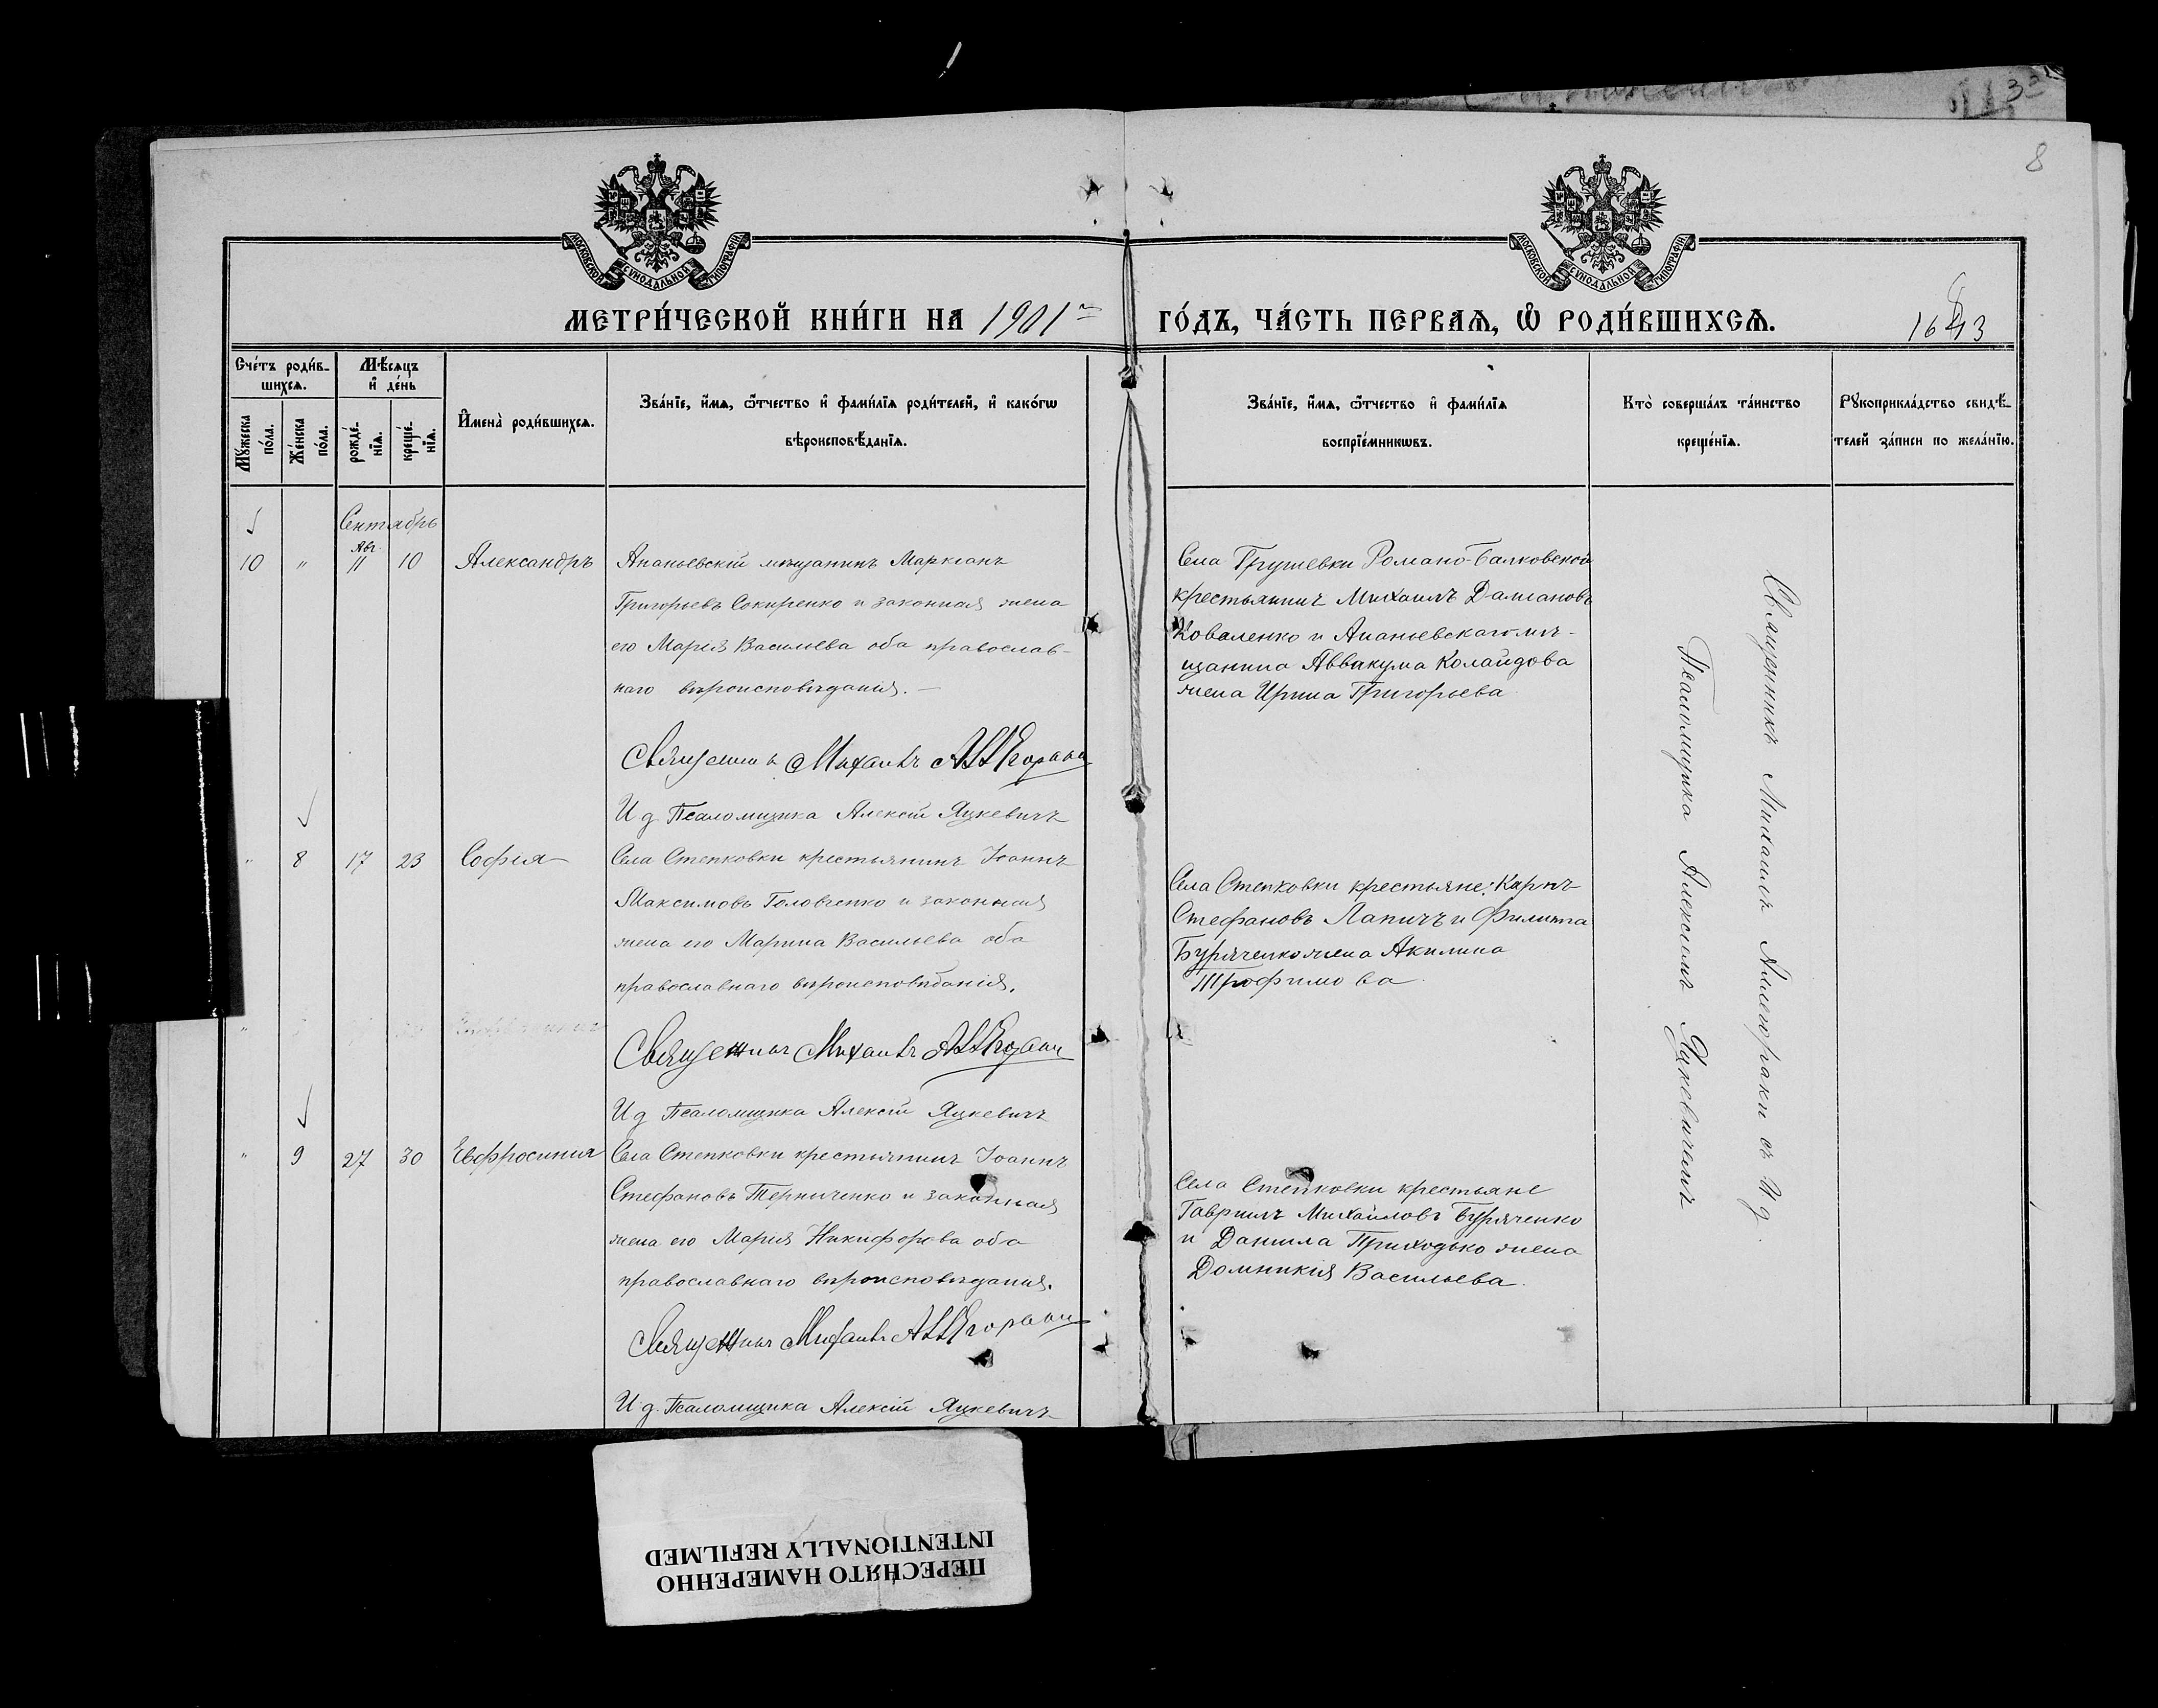 8
МОСКОВСКОЙ СѴНОДАЛЬНОЙ ТИПОГРАФІИ
МОСКОВСКОЙ СѴНОДАЛЬНОЙ ТИПОГРАФІИ
МЕТРИ́ЧЕСКОЙ КНИ́ГИ НА 1901 ГО́ДЪ, ЧА́СТЬ ПЕРВАЯ, Ѡ РОДИ́ВШИХСЯ.
Сче́тъ роди́в-
шихся.
Мѣсяцъ
и де́нь
Мꙋжеска по́ла.
Же́нска по́ла.
рожде́-
нїя.
креще́-
нїя.
Имена̀ роди́вшихся.
Зва́нїе, и́мя, ѻ́тчество и фами́лїя роди́телей, и како́гѡ
вѣроисповѣ́данїя.
Зва́нїе, и́мя, ѻ́тчество и фами́лїя
воспрїе́мникѡвъ.
Кто̀ соверша́лъ та́инство
креще́нїя.
Рꙋкоприкла́дство свидѣ́-
телей за́писи по жела́нїю.
Сентябрь
10 " Авг. 11 10 Александръ
Ананьевскій мѣщанинъ Маркіанъ
Григорьевъ Сокиренко и законная жена
его Марія Васильева оба православ-
наго вѣроисповѣданія.—
Священникъ Михаилъ
И д Псаломщика Алексій Яцкевичъ
Села Грушевки Романо-Балковской
крестьянинъ Михаилъ Даміановъ
Коваленко и Ананьевскаго мѣ-
щанина Аввакума Колайдова
жена Ирина Григорьева
" 8 17 23 Софія
Села Степковки крестьянинъ Іоаннъ
Максимовъ Головченко и законная
жена его Марина Васильева оба
православнаго вѣроисповѣданія.
Священникъ Михаилъ
И д Псаломщика Алексій Яцкевичъ
Села Степковки крестьяне: Карпъ
Стефановъ Лапичъ и Филиппа
Буряченко жена Акилина
Трофимова
" 9 27 30 Евфросинія
Села Степковки крестьянинъ Іоаннъ
Стефановъ Терниченко и законная
жена его Марія Никифорова оба
православнаго вѣроисповѣданія.
Священникъ Михаилъ
И д. Псаломщика Алексій Яцкевичъ
Села Степковки крестьяне
Гавріилъ Михайловъ Буряченко
и Даніила Приходько жена
Домникія Васильева.
Священникъ Михаилъ съ И д.
Псаломщика Алексіемъ Яцкевичемъ
ПЕРЕСНЯТО НАМЕРЕННО
INTENTIONALLY REFILMED